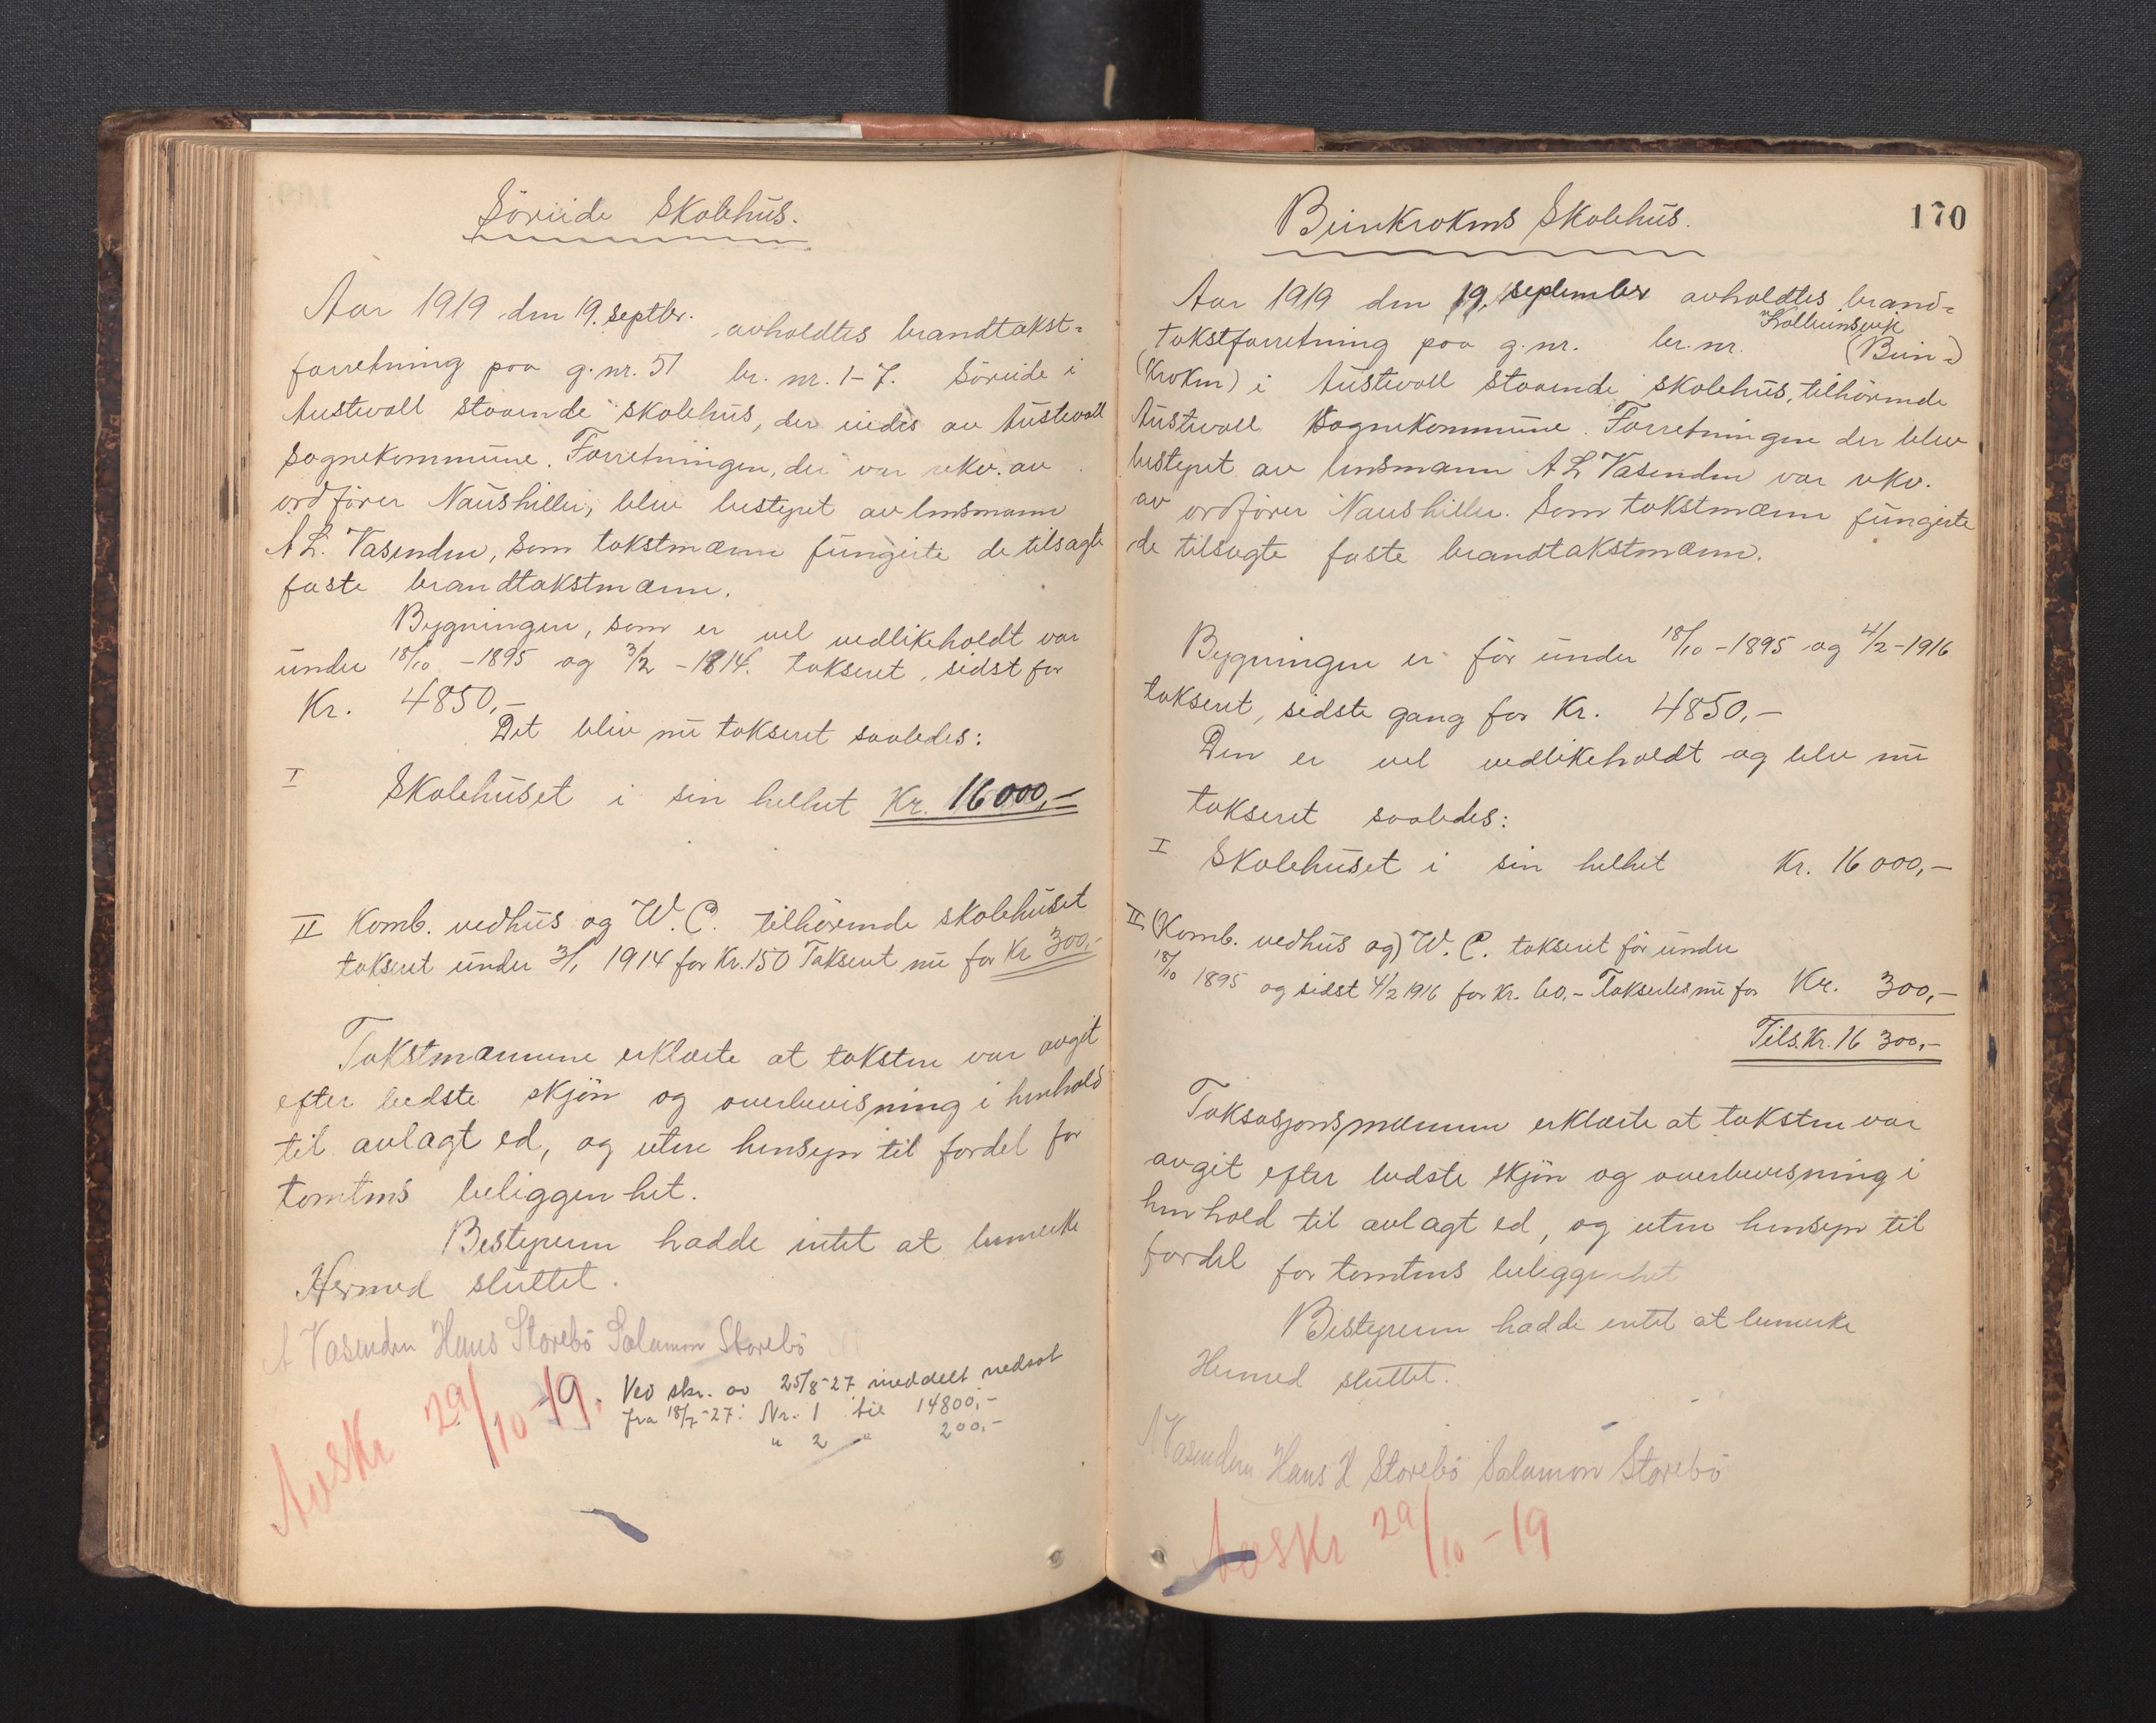 Söriide Skolehus.
Aar 1919 den 19. septbr. avholdtes brandtakst-
forretning paa g.nr. 51 br. nr. 1-7. Söriide i
Austevoll staaende skolehus, der eiedes av Austevoll
Sognekommune. Forretningen, der var rekv. av
ordförer Naushiller, blev bestyret av lensmann
A L. Vasenden, som takstmænn fungerte de tilsagte
faste brandtakstmænn.
Bygningen, som er vel vedlikeholdt var
under 18/10 -1895 og 3/2 -1814. taksert, sidst for
Kr. 4850,-
Det blev nu taksert saaledes:
I Skolehuset i sin helhet Kr. 16000,-
II Komb. vedhus og W.C. tilhörende skolehuset
taksert under 3/1 1914 for Kr. 150 Taksert nu for Kr 300,-
Takstmænnene erklærte at taksten var avgit
efter bedste skjön og overbevisning i henhold
til avlagt ed, og uten hensyn til fordel for
tomtens beliggenhet.
Bestyreren hadde intet at bemerke
Hermed sluttet.
A Vasenden Hans Storebö Salamon Storebö
Avskr 29/10 -19.
Ved skr. av 25/8-27 meddelt nedsat
fra 18/7-27: Nr. 1 til 14800,-
" 2 " 200,-
170
Beinkrokens Skolehus.
Aar 1919 den 19. september avholdtes brand-
Kolbeinsvik
takstforretning paa g.nr. br.nr. (Bein-)
(Kroken) i Austevoll staaende skolehus, tilhörende
Austevoll Sognekommune. Forretningen der blev
bestyret av lensmann A L Vasenden var rekv.
av ordförer Naushiller. Som takstmænn fungerte
de tilsagte faste brandtakstmænn.
Bygningen er för under 18/10 -1895 og 4/2 -1916
taksert, sidste gang for Kr. 4850,-
Den er vel vedlikeholdt og blev nu
taksert saaledes:
I Skolehuset i sin helhet Kr. 16 000,-
II (Komb. vedhus og) W.C. taksert för under
18/10 1895 og sidst 4/2 1916 for Kr. 60,- Taksertes nu for Kr. 300,-
Tils. Kr. 16 300,-
Taksasjonsmænnene erklærte at taksten var
avgit efter bedste skjön og overbevisning i
henhold til avlagt ed, og uten hensyn til
fordel for tomtens beliggenhet
Bestyreren hadde intet at bemerke
Hermed sluttet.
A Vasenden Hans H Storebö Salamon Storebö
Avskr 29/10 -19